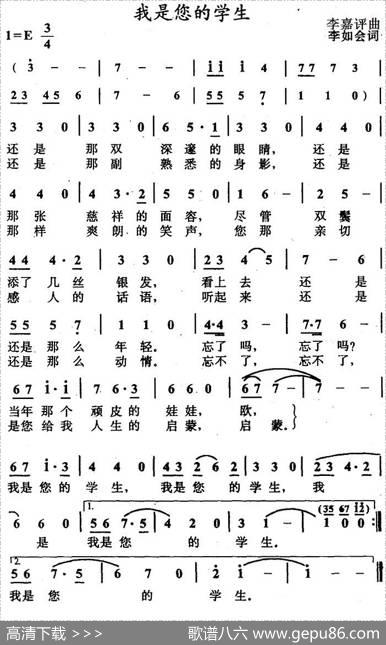 我是您的学生
1=E 3/4
李嘉评曲
李如会词
( 3 - - | 7 - - | i i i 4 | 7 7 7 3 |
2 3 4 5 6 | 7 - 6 | 5 5 5 7 | 1 1 0 ) |
3 3 0 | 3 3 0 | 6 5 · 1 | 3 3 0 | 4 4 0 |
还是 那双 深邃的眼睛, 还是
还是 那副 熟悉的身影, 还是
4 4 0 | 4 3 · 2 | 5 5 0 | 1 6 - | 2 5 - |
那张 慈祥的面容, 尽管 双鬓
那样 爽朗的笑声, 您那 亲切
4 4 4 · 2 | 3 3 0 | 2 2 3 4 5 | 7 - 6 |
添了几丝 银发, 看上去 还是
感人的 话语, 听起来 还是
5 5 5 7 | 1 1 0 | 4 · 4 3 - | 7 · 7 6 - |
还是那么 年轻。 忘了吗, 忘了吗?
还是那么 动情。 忘不了, 忘不了,
6 7 i · i | 7 6 · 3 | 6 6 0 | 6 7 7 - | 7 - - |
当年那个 顽皮的 娃娃, 歌,
是您给我 人生的 启蒙, 启蒙。
6 7 i · 3 | 4 4 0 | 4 3 2 6 2 | 3 3 0 | 2 3 4 · 2 |
我是您的 学生, 我是您 的 学生, 我
6 6 0 | 5 6 7 · 5 | 4 2 0 | 3 1 - | 1 0 0 :|
1.
(35 67 i2
是 我是您 的 学生.
2.
5 6 7 · 5 | 6 7 0 | 2 - - | i - - | i - - |
我是您 的 学生。
高清下载 >>>
歌谱八六 www.gepu86.com